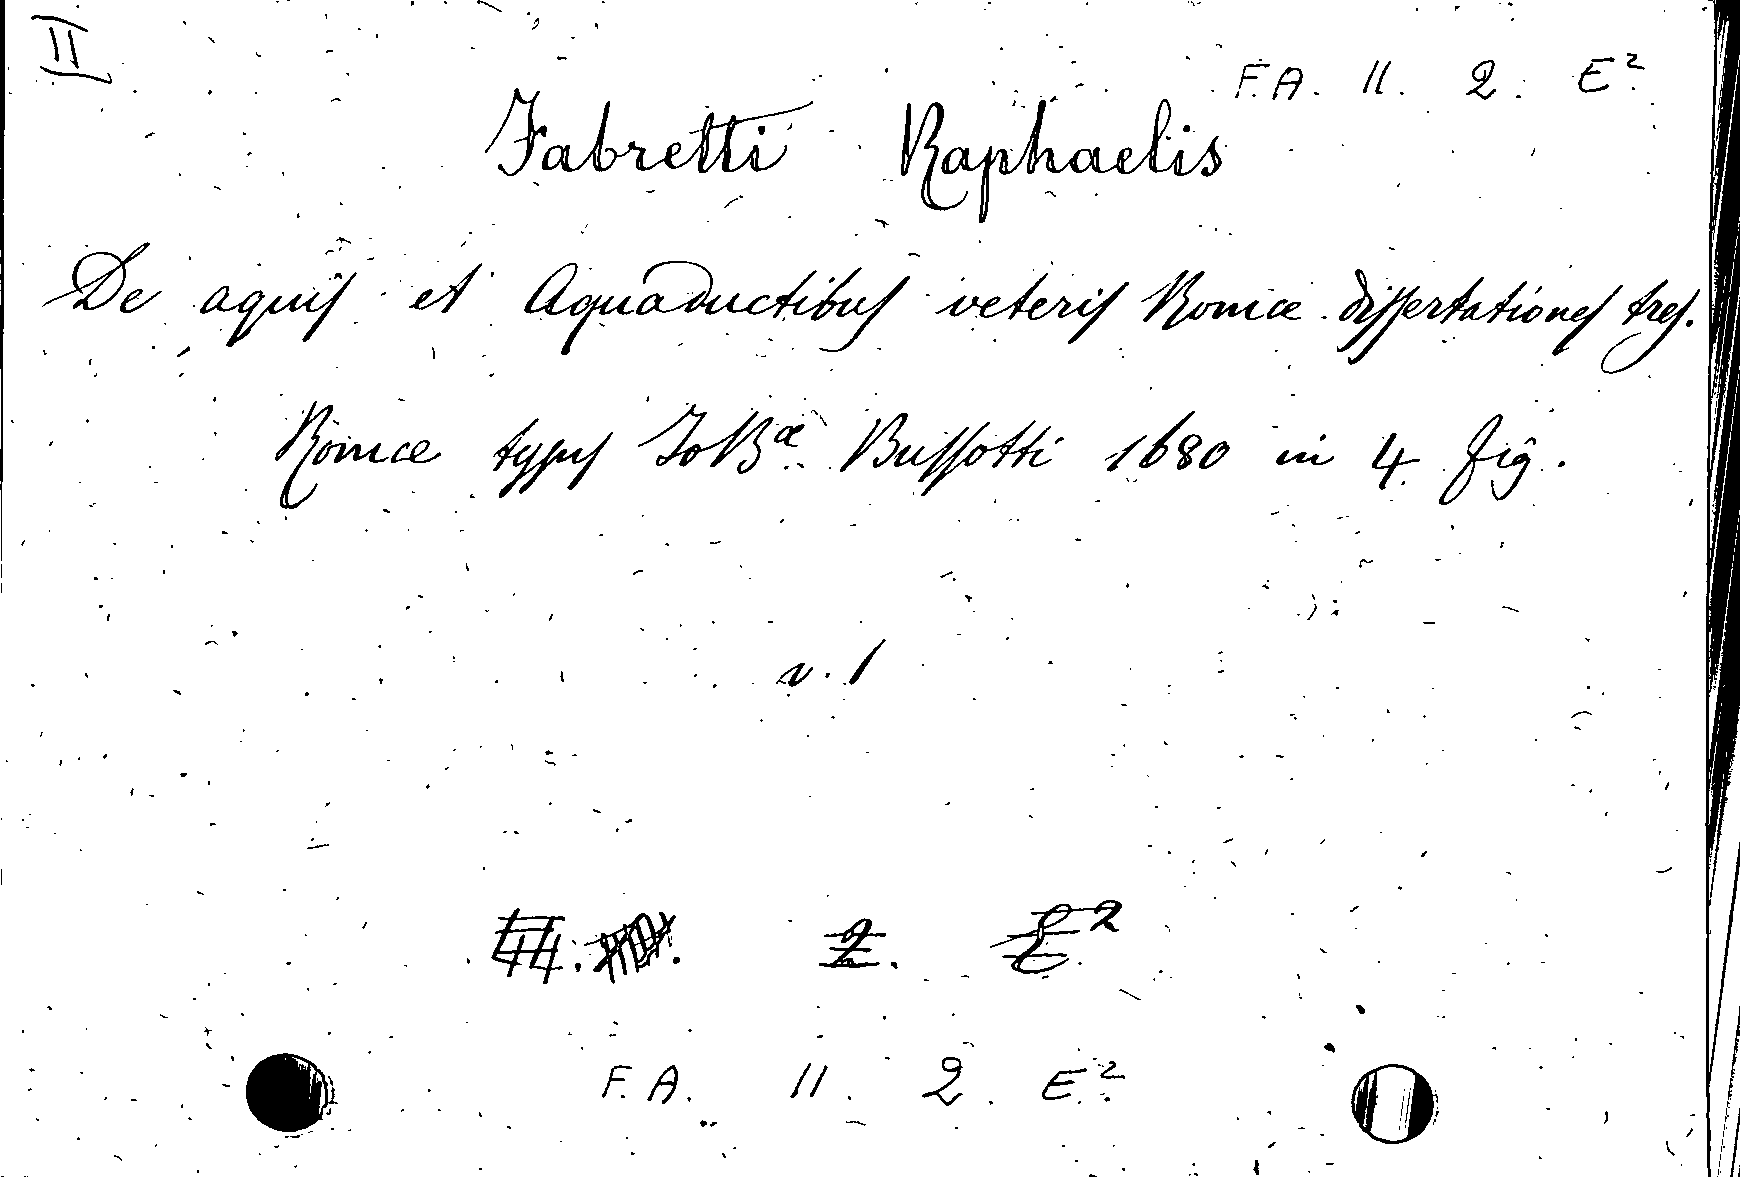 II
F.A. 11. 2. E²
Fabretti Raphaelis
De aquis et Aquaductibus veteris Romæ dissertationes tres.
Romæ typis JoBæ Bussotti 1680 in 4 fig.
v. 1
2. E²
F.A. 11. 2. E²